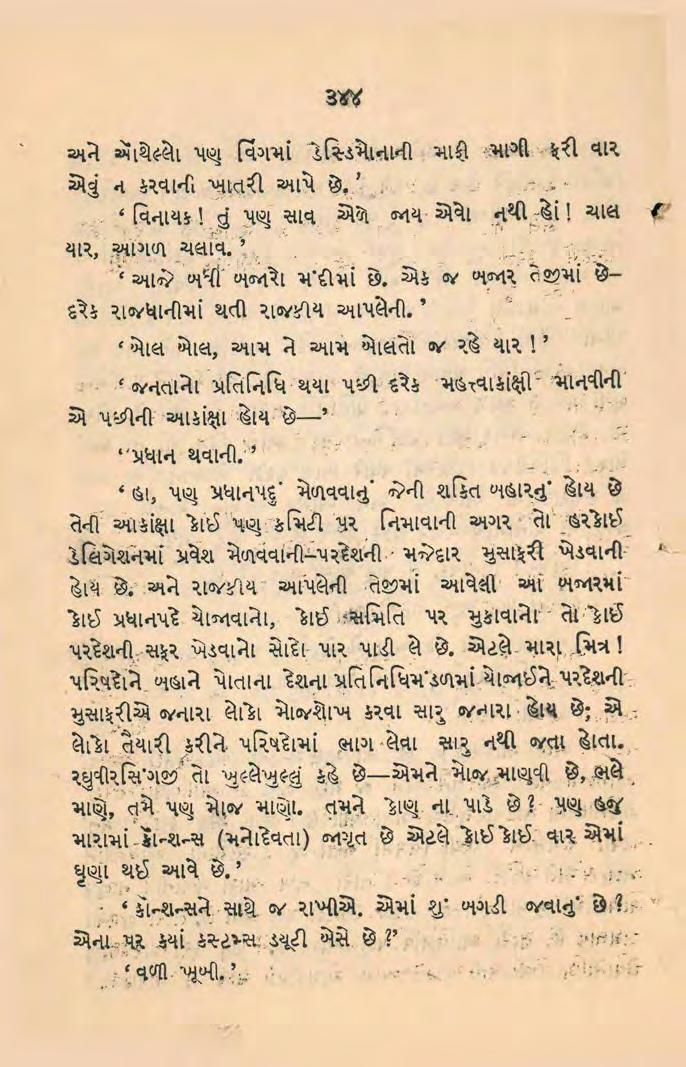 ૩૪૪
અને ઑથેલ્લો પણ વિંગમાં ડેસ્ડિમોનાની માફી માગી ફરી વાર
એવું ન કરવાની ખાતરી આપે છે.’
‘વિનાયક! તું પણ સાવ એળે જાય એવો નથી હોં! ચાલ
યાર, આગળ ચલાવ.’
‘આજે બધી બજારો મંદીમાં છે. એક જ બજાર તેજીમાં છે–
દરેક રાજધાનીમાં થતી રાજકીય આપલેની.’
‘બોલ બોલ, આમ ને આમ બોલતો જ રહે યાર!’
‘જનતાનો પ્રતિનિધિ થયા પછી દરેક મહત્ત્વાકાંક્ષી માનવીની
એ પછીની આકાંક્ષા હોય છે—’
‘‘પ્રધાન થવાની.’
‘હા, પણ પ્રધાનપદું મેળવવાનું જેની શક્તિ બહારનું હોય છે
તેની આકાંક્ષા કોઈ પણ કમિટી પર નિમાવાની અગર તો હરકોઈ
ડેલિગેશનમાં પ્રવેશ મેળવવાની–પરદેશની મજેદાર મુસાફરી ખેડવાની
હોય છે. અને રાજકીય આપલેની તેજીમાં આવેલી આ બજારમાં
કોઈ પ્રધાનપદે યોજાવાનો, કોઈ સમિતિ પર મુકાવાનો તો કોઈ
પરદેશની સફર ખેડવાનો સોદો પાર પાડી લે છે. એટલે મારા મિત્ર!
પરિષદોને બહાને પોતાના દેશના પ્રતિનિધિમંડળમાં યોજાઈને પરદેશની
મુસાફરીએ જનારા લોકો મોજશોખ કરવા સારુ જનારા હોય છે; એ
લોકો તૈયારી કરીને પરિષદોમાં ભાગ લેવા સારુ નથી જતા હોતા.
રઘુવીરસિંગજી તો ખુલ્લેખુલ્લું કહે છે—એમને મોજ માણવી છે, ભલે
માણે, તમે પણ મોજ માણો. તમને કોણ ના પાડે છે? પણ હજુ
મારામાં કૉન્શન્સ (મનોદેવતા) જાગૃત છે એટલે કોઈ કોઈ વાર એમાં
ઘૃણા થઈ આવે છે.’
‘કૉન્શન્સને સાથે જ રાખીએ. એમાં શું બગડી જવાનું છે?
એના પર કયાં કસ્ટમ્સ ડ્યૂટી બેસે છે?’
‘વળી ખૂબી.’